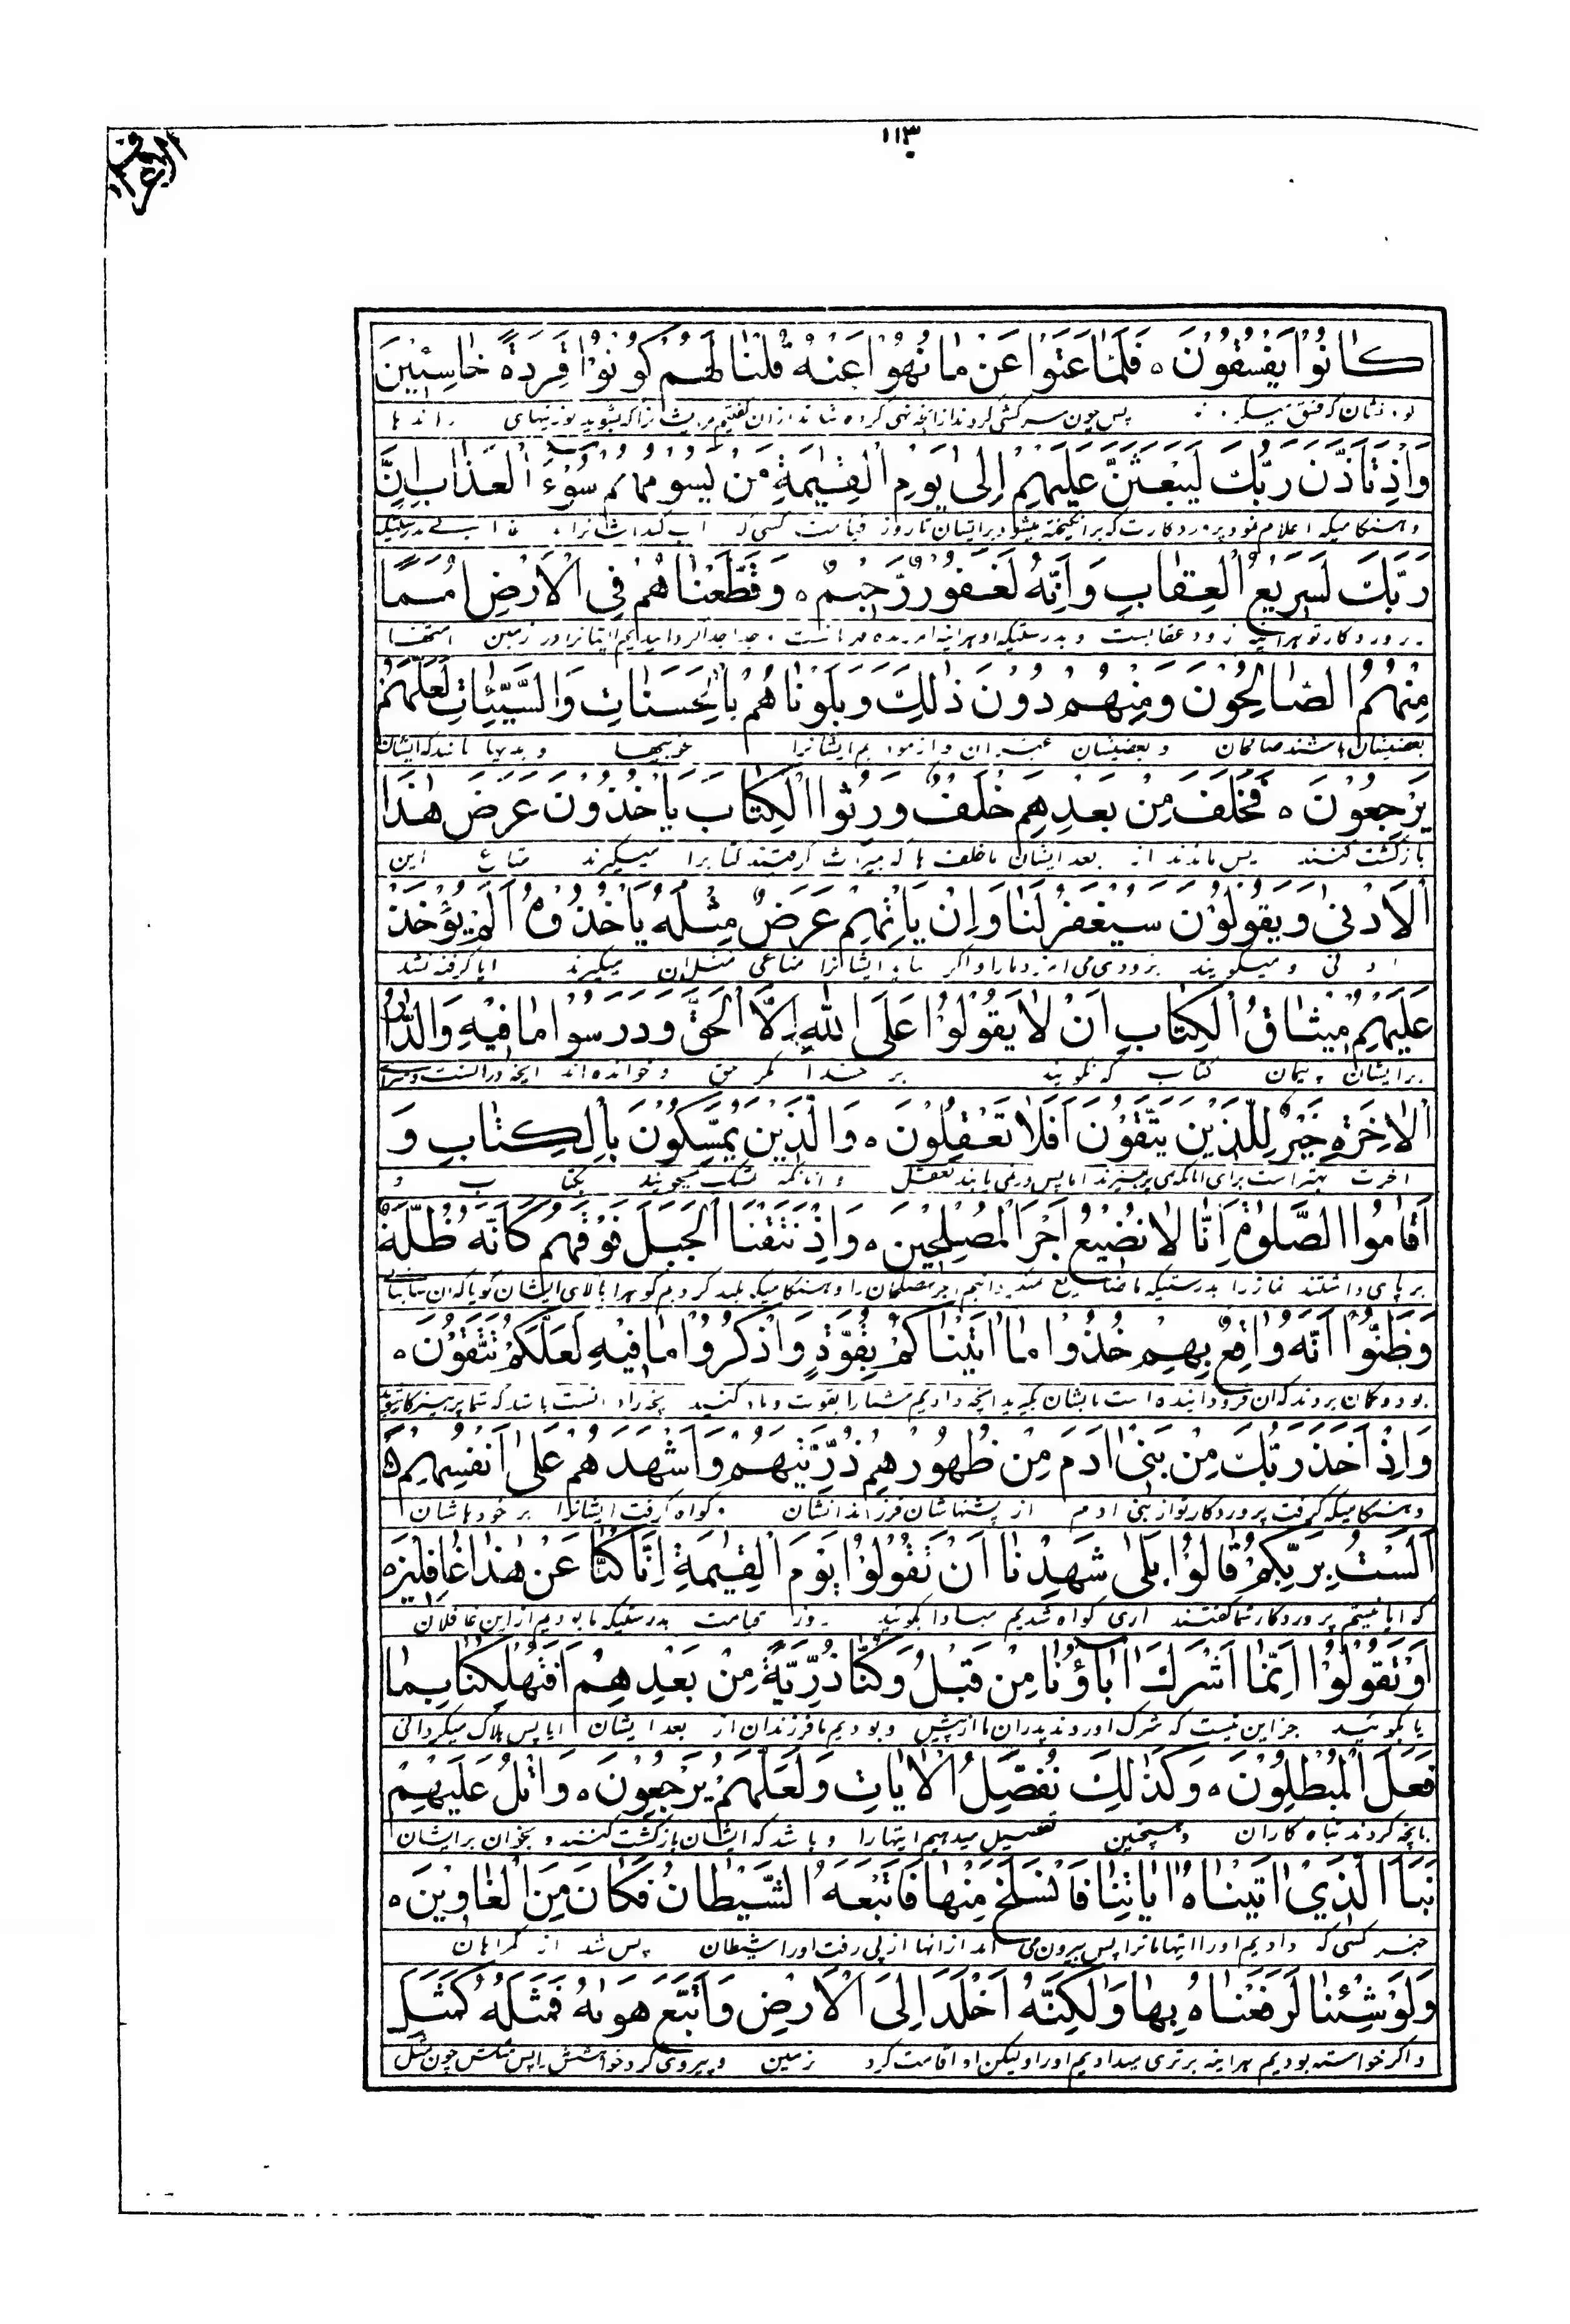 ١١٣
الاعراف
كَانُوا يَفْسُقُونَ ه فَلَمَّا عَتَوْا عَنْ مَا نُهُوا عَنْهُ قُلْنَا لَهُمْ كُونُوا قِرَدَةً خَاسِئِينَ
پس چون سرکشی کردند از آنچه نهی کرده شدند از آن گفتیم مر ایشانرا که بشوید بوزینهای رانده‌ها
وَإِذْ تَأَذَّنَ رَبُّكَ لَيَبْعَثَنَّ عَلَيْهِمْ إِلَى يَوْمِ الْقِيٰمَةِ مَنْ يَسُومُهُمْ سُوءَ الْعَذَابِ إِنَّ
و هنگامیکه اعلام نمود پروردکارت که برانگیخته میشود بر ایشان تا روز قیامت کسی که
رَبَّكَ لَسَرِيعُ الْعِقَابِ وَإِنَّهُ لَغَفُورٌ رَحِيمٌ ه وَقَطَّعْنَاهُمْ فِي الْأَرْضِ أُمَمًا
پروردکار تو هراینه زود عقابست و بدرستیکه او هراینه امرزنده مهربانست
مِنْهُمُ الصَّالِحُونَ وَمِنْهُمْ دُونَ ذٰلِكَ وَبَلَوْنَاهُمْ بِالْحَسَنَاتِ وَالسَّيِّئَاتِ لَعَلَّهُمْ
بعضیشان هستند صالحان و بعضیشان غیر ان و ازمودیم ایشانرا بخوبیها و بدیها
يَرْجِعُونَ ه فَخَلَفَ مِنْ بَعْدِهِمْ خَلْفٌ وَرِثُوا الْكِتَابَ يَأْخُذُونَ عَرَضَ هٰذَا
بازگشت کنند پس ماندند از بعد ایشان ناخلف ها که میراث گرفتند کتابرا میگیرند متاع این
الْأَدْنَى وَيَقُولُونَ سَيُغْفَرُ لَنَا وَإِنْ يَأْتِهِمْ عَرَضٌ مِثْلُهُ يَأْخُذُوهُ أَلَمْ يُؤْخَذْ
ادنی و میگویند بزودی می امرزد ما را و اگر بیاید ایشانرا متاعی مثل ان میگیرند ایا گرفته نشد
عَلَيْهِمْ مِيثَاقُ الْكِتَابِ أَنْ لَا يَقُولُوا عَلَى اللّٰهِ إِلَّا الْحَقَّ وَدَرَسُوا مَا فِيهِ وَالدَّارُ
بر ایشان پیمان کتاب که نگویند بر خدا مگر حق و خوانده اند انچه در انست و سرای
الْآخِرَةِ خَيْرٌ لِلَّذِينَ يَتَّقُونَ أَفَلَا تَعْقِلُونَ ه وَالَّذِينَ يُمَسِّكُونَ بِالْكِتَابِ وَ
اخرت بهتر است برای انانکه می پرهیزند ایا پس در نمی یابند تعقل و انانکه تمسک میجویند بکتاب و
أَقَامُوا الصَّلٰوةَ إِنَّا لَا نُضِيعُ أَجْرَ الْمُصْلِحِينَ ه وَإِذْ نَتَقْنَا الْجَبَلَ فَوْقَهُمْ كَأَنَّهُ ظُلَّةٌ
بر پای داشتند نماز را بدرستیکه ما ضایع نمیگردانیم اجر مصلحان را و هنگامیکه بلند کردیم کوهرا بالای ایشان گویا که ان سایبانی
وَظَنُّوا أَنَّهُ وَاقِعٌ بِهِمْ خُذُوا مَا آتَيْنَاكُمْ بِقُوَّةٍ وَاذْكُرُوا مَا فِيهِ لَعَلَّكُمْ تَتَّقُونَ ه
بود و گمان بردند که ان فرود آینده است بایشان بگیرید انچه دادیم شما را بقوت و یاد کنید انچه در انست باشد که شما پرهیزکار شوید
وَإِذْ أَخَذَ رَبُّكَ مِنْ بَنِي آدَمَ مِنْ ظُهُورِهِمْ ذُرِّيَّتَهُمْ وَأَشْهَدَهُمْ عَلَى أَنْفُسِهِمْ ه
و هنگامیکه گرفت پروردکار تو از بنی ادم از پشتهاشان فرزندانشان و گواه گرفت ایشانرا بر خودهاشان
أَلَسْتُ بِرَبِّكُمْ قَالُوا بَلَى شَهِدْنَا أَنْ تَقُولُوا يَوْمَ الْقِيٰمَةِ إِنَّا كُنَّا عَنْ هٰذَا غَافِلِينَ ه
که ایا نیستم پروردکار شما گفتند اری گواه شدیم مبادا بگوئید روز قیامت بدرستیکه ما بودیم از این غافلان
أَوْ تَقُولُوا إِنَّمَا أَشْرَكَ آبَاؤُنَا مِنْ قَبْلُ وَكُنَّا ذُرِّيَّةً مِنْ بَعْدِهِمْ أَفَتُهْلِكُنَا بِمَا
یا بگوئید جز این نیست که شرک اوردند پدران ما از پیش و بودیم ما فرزندان از بعد ایشان ایا پس هلاک میگردانی
فَعَلَ الْمُبْطِلُونَ ه وَكَذٰلِكَ نُفَصِّلُ الْآيَاتِ وَلَعَلَّهُمْ يَرْجِعُونَ ه وَاتْلُ عَلَيْهِمْ
بانچه کردند تباه کاران و همچنین تفصیل میدهیم ایتها را و باشد که ایشان بازگشت کنند و بخوان بر ایشان
نَبَأَ الَّذِي آتَيْنَاهُ آيَاتِنَا فَانْسَلَخَ مِنْهَا فَأَتْبَعَهُ الشَّيْطَانُ فَكَانَ مِنَ الْغَاوِينَ ه
خبر کسی که دادیم او را ایتها مانرا پس بیرون می امد از انها از پی رفت او را شیطان پس شد از گمراهان
وَلَوْ شِئْنَا لَرَفَعْنَاهُ بِهَا وَلٰكِنَّهُ أَخْلَدَ إِلَى الْأَرْضِ وَاتَّبَعَ هَوٰىهُ فَمَثَلُهُ كَمَثَلِ
و اگر خواسته بودیم هراینه برتری میدادیم او را ولیکن او اقامت کرد زمین و پیروی کرد خواهشش را پس مثلش چون مثل